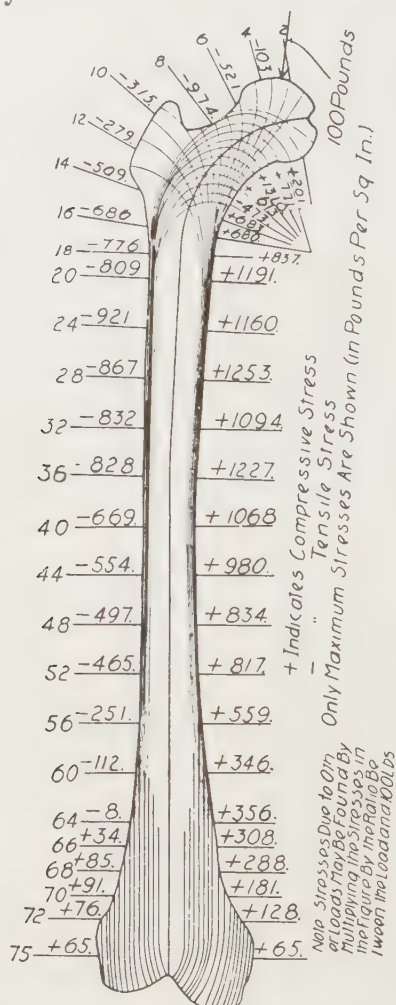 2
100 Pounds
4 -103
6 -521
8 -974.
10 -315.
12 -279.
14 -509.
16 -686
18 -776
20 -809
24 -921
28 -867
32 -832
36 -828
40 -669.
44 -554.
48 -497.
52 -465.
56 -251.
60 -112.
64 -8.
66 +34.
68 +85.
70 +91.
72 +76.
75 +65.
+837.
+1191.
+1160.
+1253
+1094
+1227.
+1068
+980.
+834.
+817.
+559.
+346.
+356.
+308.
+288.
+181.
+128.
+65.
+ Indicates Compressive Stress
- " Tensile Stress
Only Maximum Stresses Are Shown (in Pounds Per Sq In.)
Note Stresses Due to Oth
er Loads May Be Found By
Multiplying the Stresses in
the Figure By the Ratio Be
tween the Load and 100 LDS